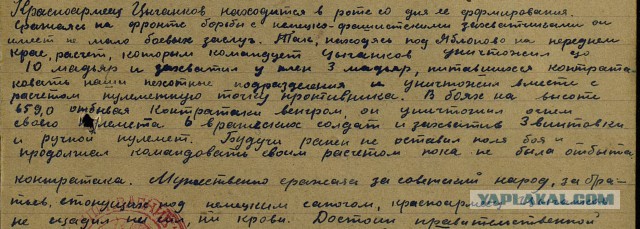 Красноармеец Цыганков находится в роте со дня её формирования.
Сражаясь на фронте борьбы с немецко-фашистскими захватчиками он
имеет не мало боевых заслуг. Так, находясь под Яблоново на переднем
крае, расчет, которым командует Цыганков уничтожил до
10 мадьяр и захватил у плен 3 мадьяр, пытавшиеся контрата-
ковать наши пехотные подразделения и уничтожил вместе с
расчетом пулеметную точку противника. В боях на высоте
159,0 отбивая контратаки венгров, он уничтожил огнем
своего пулемета 6 вражеских солдат и захватив 3 винтовки
и ручной пулемет. Будучи ранен не оставил поля боя и
продолжал командовать своим расчетом пока не была отбита
контратака. Мужественно сражаясь за советский народ, за бра-
тьев, стонущих под немецким сапогом, красноармеец
не щадил ни сил ни крови. Достоин правительственной
YAPLAKAL.COM